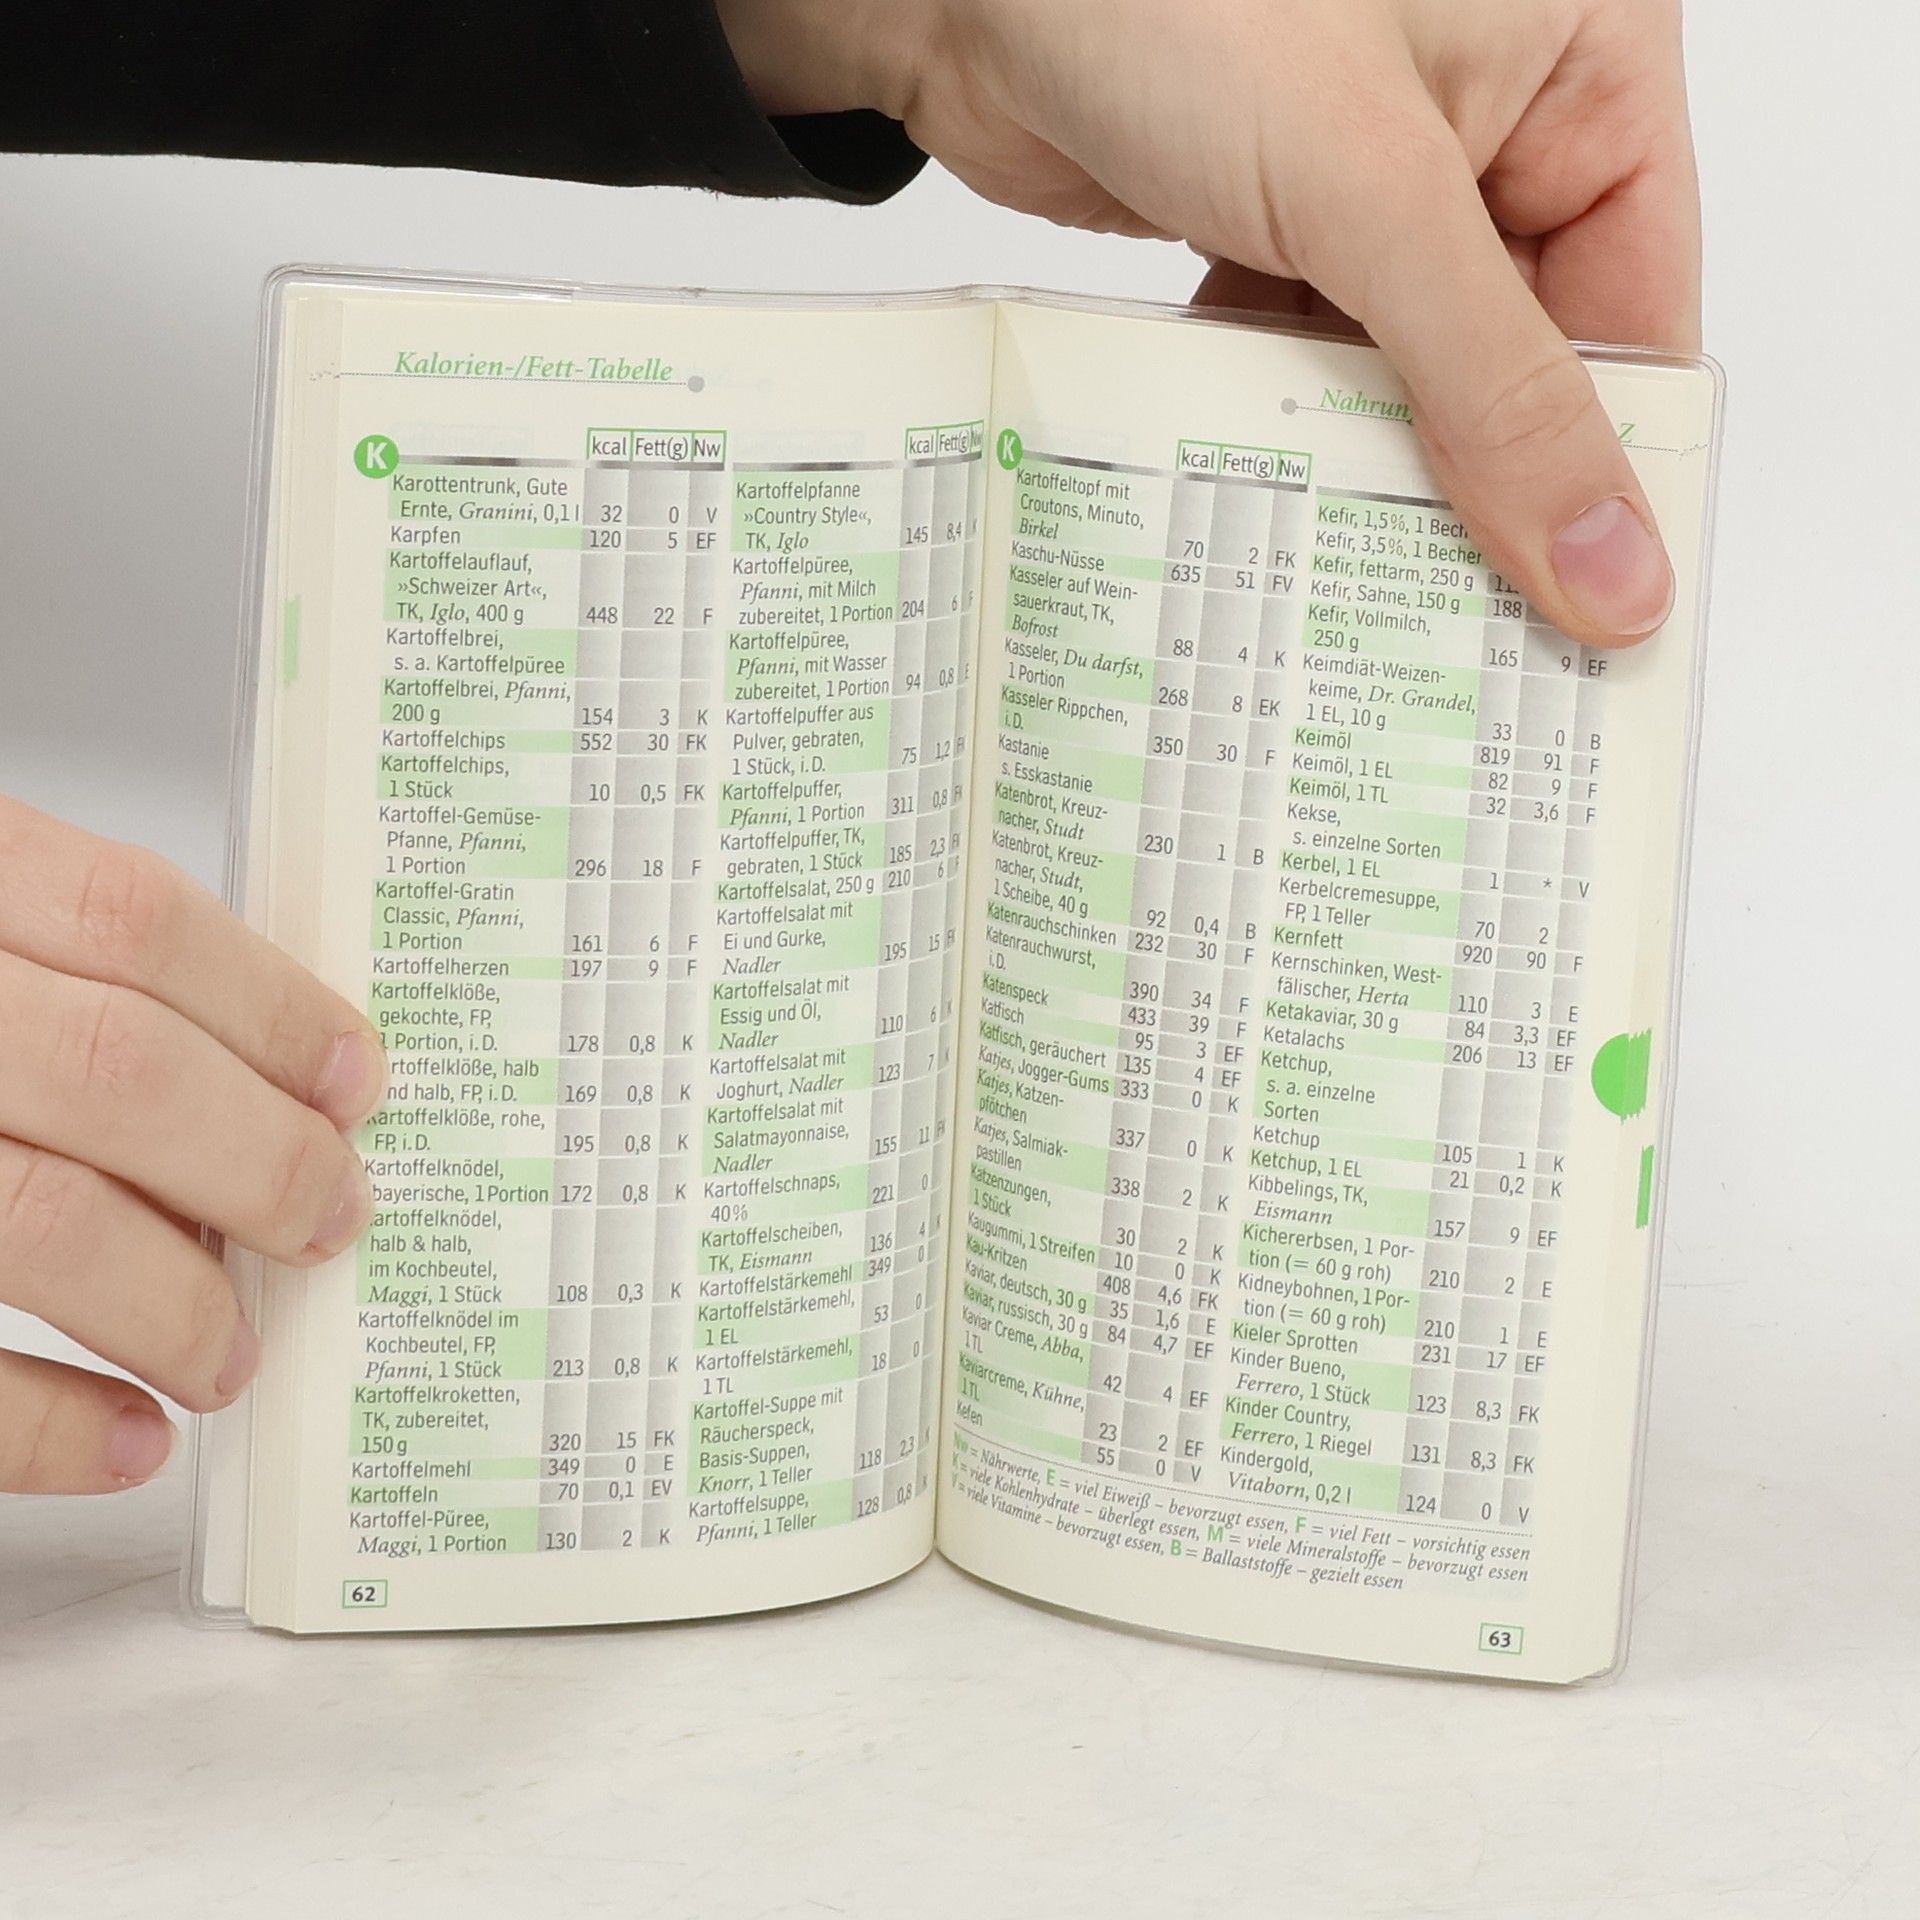 Kalorien-/Fett-Tabelle
K
kcal Fett(g) Nw
Karottentrunk, Gute
Ernte, Granini, 0,1 l 32 0 V
Karpfen 120 5 EF
Kartoffelauflauf,
»Schweizer Art«,
TK, Iglo, 400 g 448 22 F
Kartoffelbrei,
s. a. Kartoffelpüree
Kartoffelbrei, Pfanni,
200 g 154 3 K
Kartoffelchips 552 30 FK
Kartoffelchips,
1 Stück 10 0,5 FK
Kartoffel-Gemüse-
Pfanne, Pfanni,
1 Portion 296 18 F
Kartoffel-Gratin
Classic, Pfanni,
1 Portion 161 6 F
Kartoffelherzen 197 9 F
Kartoffelklöße,
gekochte, FP,
1 Portion, i. D. 178 0,8 K
rtoffelklöße, halb
nd halb, FP, i. D. 169 0,8 K
Kartoffelklöße, rohe,
FP, i. D. 195 0,8 K
Kartoffelknödel,
bayerische, 1 Portion 172 0,8 K
artoffelknödel,
halb & halb,
im Kochbeutel,
Maggi, 1 Stück 108 0,3 K
Kartoffelknödel im
Kochbeutel, FP,
Pfanni, 1 Stück 213 0,8 K
Kartoffelkroketten,
TK, zubereitet,
150 g 320 15 FK
Kartoffelmehl 349 0 E
Kartoffeln 70 0,1 EV
Kartoffel-Püree,
Maggi, 1 Portion 130 2 K
62
kcal Fett(g) Nw
Kartoffelpfanne
»Country Style«,
TK, Iglo 145 8,4
Kartoffelpüree,
Pfanni, mit Milch
zubereitet, 1 Portion 204 6
Kartoffelpüree,
Pfanni, mit Wasser
zubereitet, 1 Portion 94 0,8
Kartoffelpuffer aus
Pulver, gebraten,
1 Stück, i. D. 75 1,2
Kartoffelpuffer,
Pfanni, 1 Portion 311 0,8
Kartoffelpuffer, TK,
gebraten, 1 Stück 185 2,3
Kartoffelsalat, 250 g 210 6
Kartoffelsalat mit
Ei und Gurke,
Nadler 195 15
Kartoffelsalat mit
Essig und Öl,
Nadler 110 6
Kartoffelsalat mit
Joghurt, Nadler 123 7
Kartoffelsalat mit
Salatmayonnaise,
Nadler 155 11
Kartoffelschnaps,
40% 221 0
Kartoffelscheiben,
TK, Eismann 136 4
Kartoffelstärkemehl 349 0
Kartoffelstärkemehl,
1 EL 53 0
Kartoffelstärkemehl,
1 TL 18 0
Kartoffel-Suppe mit
Räucherspeck,
Basis-Suppen,
Knorr, 1 Teller 118 2,3
Kartoffelsuppe,
Pfanni, 1 Teller 128 0,8
Nahrun Z
K
kcal Fett(g) Nw
Kartoffeltopf mit
Croutons, Minuto,
Birkel 70 2 FK
Kaschu-Nüsse 635 51 FV
Kasseler auf Wein-
sauerkraut, TK,
Bofrost 88 4 K
Kasseler, Du darfst,
1 Portion 268 8 EK
Kasseler Rippchen,
i. D. 350 30 F
Kastanie
s. Esskastanie
Katenbrot, Kreuz-
nacher, Studt 230 1 B
Katenbrot, Kreuz-
nacher, Studt,
1 Scheibe, 40 g 92 0,4 B
Katenrauchschinken 232 30 F
Katenrauchwurst,
i. D. 390 34 F
Katenspeck 433 39 F
Katfisch 95 3 EF
Katfisch, geräuchert 135 4 EF
Katjes, Jogger-Gums 333 0 K
Katjes, Katzen-
pfötchen 337 0 K
Katjes, Salmiak-
pastillen 338 2 K
Katzenzungen,
1 Stück 30 2 K
Kaugummi, 1 Streifen 10 0 K
Kau-Kritzen 408 4,6 FK
Kaviar, deutsch, 30 g 35 1,6 E
Kaviar, russisch, 30 g 84 4,7 EF
Kaviar Creme, Abba,
1 TL 42 4 EF
Kaviarcreme, Kühne,
1 TL 23 2 EF
Kefen 55 0 V
Kefir, 1,5%, 1 Bech
Kefir, 3,5%, 1 Becher
Kefir, fettarm, 250 g
Kefir, Sahne, 150 g 188
Kefir, Vollmilch,
250 g 165 9 EF
Keimdiät-Weizen-
keime, Dr. Grandel,
1 EL, 10 g 33 0 B
Keimöl 819 91 F
Keimöl, 1 EL 82 9 F
Keimöl, 1 TL 32 3,6 F
Kekse,
s. einzelne Sorten
Kerbel, 1 EL 1 * V
Kerbelcremesuppe,
FP, 1 Teller 70 2
Kernfett 920 90 F
Kernschinken, West-
fälischer, Herta 110 3 E
Ketakaviar, 30 g 84 3,3 EF
Ketalachs 206 13 EF
Ketchup,
s. a. einzelne
Sorten
Ketchup 105 1 K
Ketchup, 1 EL 21 0,2 K
Kibbelings, TK,
Eismann 157 9 EF
Kichererbsen, 1 Por-
tion (= 60 g roh) 210 2 E
Kidneybohnen, 1 Por-
tion (= 60 g roh) 210 1 E
Kieler Sprotten 231 17 EF
Kinder Bueno,
Ferrero, 1 Stück 123 8,3 FK
Kinder Country,
Ferrero, 1 Riegel 131 8,3 FK
Kindergold,
Vitaborn, 0,2 l 124 0 V
Nw = Nährwerte, E = viel Eiweiß – bevorzugt essen, F = viel Fett – vorsichtig essen
K = viele Kohlenhydrate – überlegt essen, M = viele Mineralstoffe – bevorzugt essen
V = viele Vitamine – bevorzugt essen, B = Ballaststoffe – gezielt essen
63